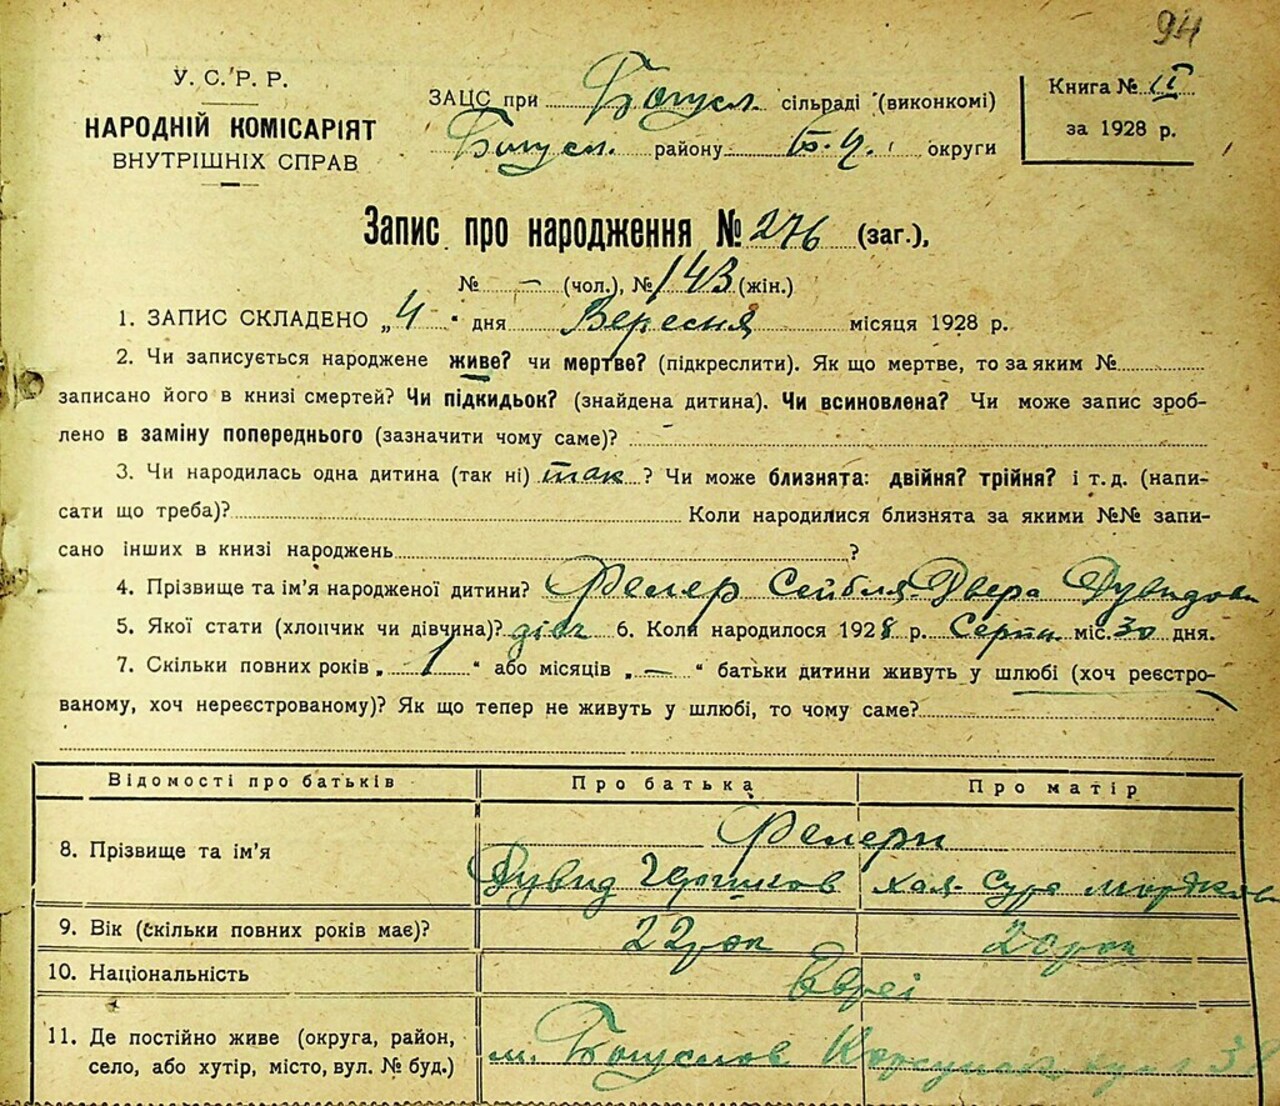 94
У. С. Р. Р.
НАРОДНІЙ КОМІСАРІЯТ
ВНУТРІШНІХ СПРАВ
ЗАЦС при Богусл. сільраді (виконкомі)
Богусл. району Б.Ц. округи
Книга № II
за 1928 р.
Запис про народження № 276 (заг.),
№ — (чол.), № 143 (жін.)
1. ЗАПИС СКЛАДЕНО „4" дня Вересня місяця 1928 р.
2. Чи записується народжене живе? чи мертве? (підкреслити). Як що мертве, то за яким №
записано його в книзі смертей? Чи підкидьок? (знайдена дитина). Чи всиновлена? Чи може запис зроб-
лено в заміну попереднього (зазначити чому саме)?
3. Чи народилась одна дитина (так ні) так? Чи може близнята: двійня? трійня? і т.д. (напи-
сати що треба)? Коли народилися близнята за якими №№ запи-
сано інших в книзі народжень ?
4. Прізвище та ім'я народженої дитини? Фелер Сейбля-Двера Дувидовн
5. Якої стати (хлопчик чи дівчина)? дівч 6. Коли народилося 1928 р. Серпн міс. 30 дня.
7. Скільки повних років „1" або місяців „—" батьки дитини живуть у шлюбі (хоч реєстро-
ваному, хоч нереєстрованому)? Як що тепер не живуть у шлюбі, то чому саме?
Відомості про батьків Про батька Про матір
8. Прізвище та ім'я Фелери
Дувид Гершков Хая-Сура Мордков
9. Вік (скільки повних років має)? 22 рок 20 рок
10. Національність Євреі
11. Де постійно живе (округа, район,
село, або хутір, місто, вул. № буд.)
м. Богуслов